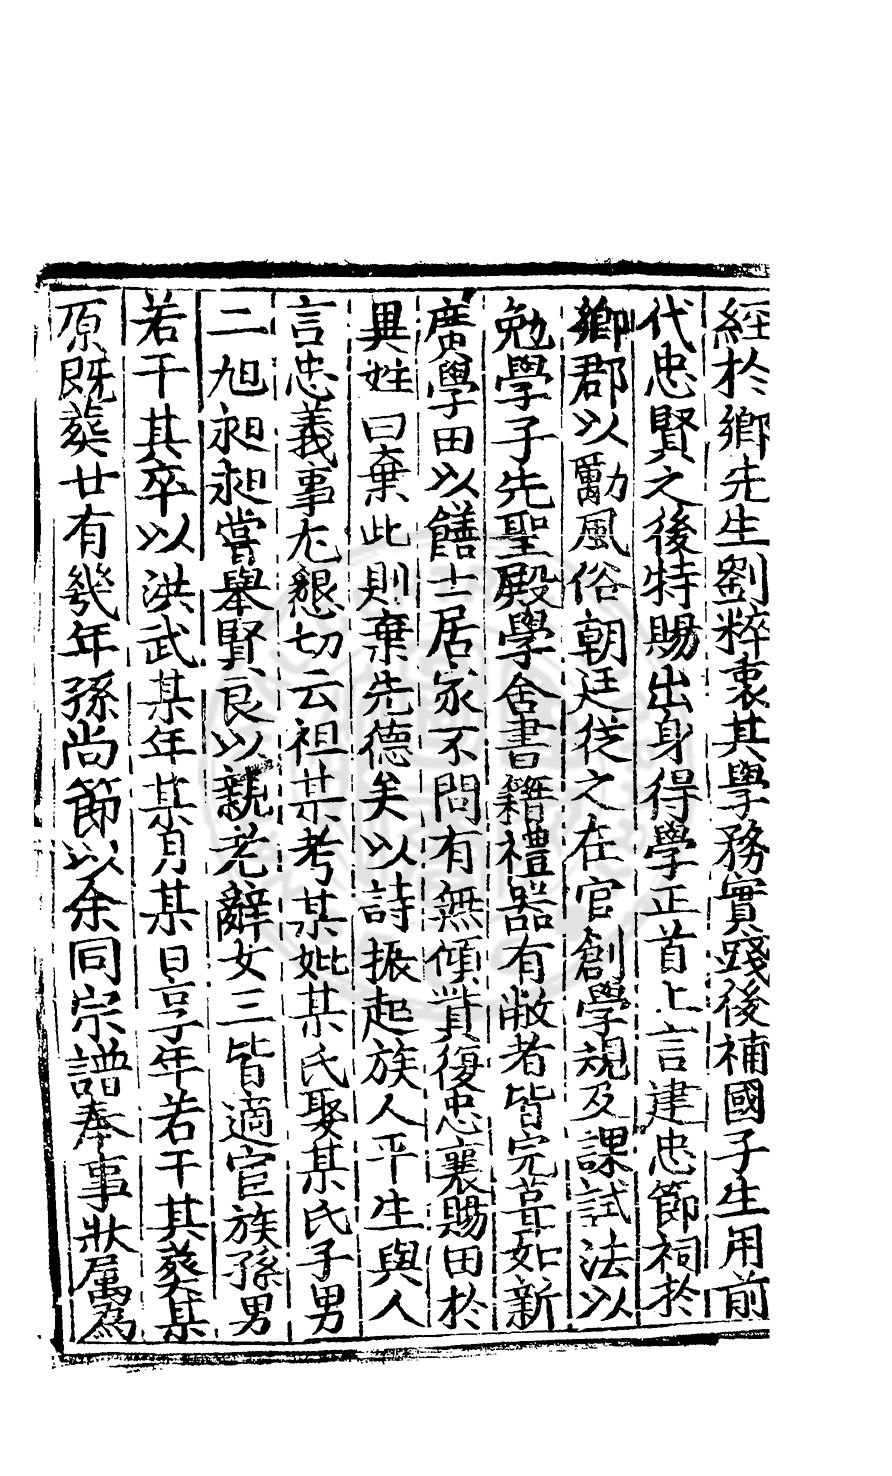 經於鄉先生劉粹衷其學務實踐後補國子生用前
代忠賢之後特賜出身得學正首上言建忠節祠於
鄉郡以勵風俗朝廷從之在官創學規及課試法以
勉學子先聖殿學舍書籍禮器有敝者皆完葺如新
廣學田以饍士居家不問有無傾貲復忠襄賜田於
異姓曰棄此則棄先德矣以詩振起族人平生與人
言忠義事尤懇切云祖某考某妣某氏娶某氏子男
二旭昶昶嘗舉賢良以親老辭女三皆適宦族孫男
若干其卒以洪武某年某月某日享年若干其葬某
原既葬廿有幾年孫尚節以余同宗譜奉事狀属為